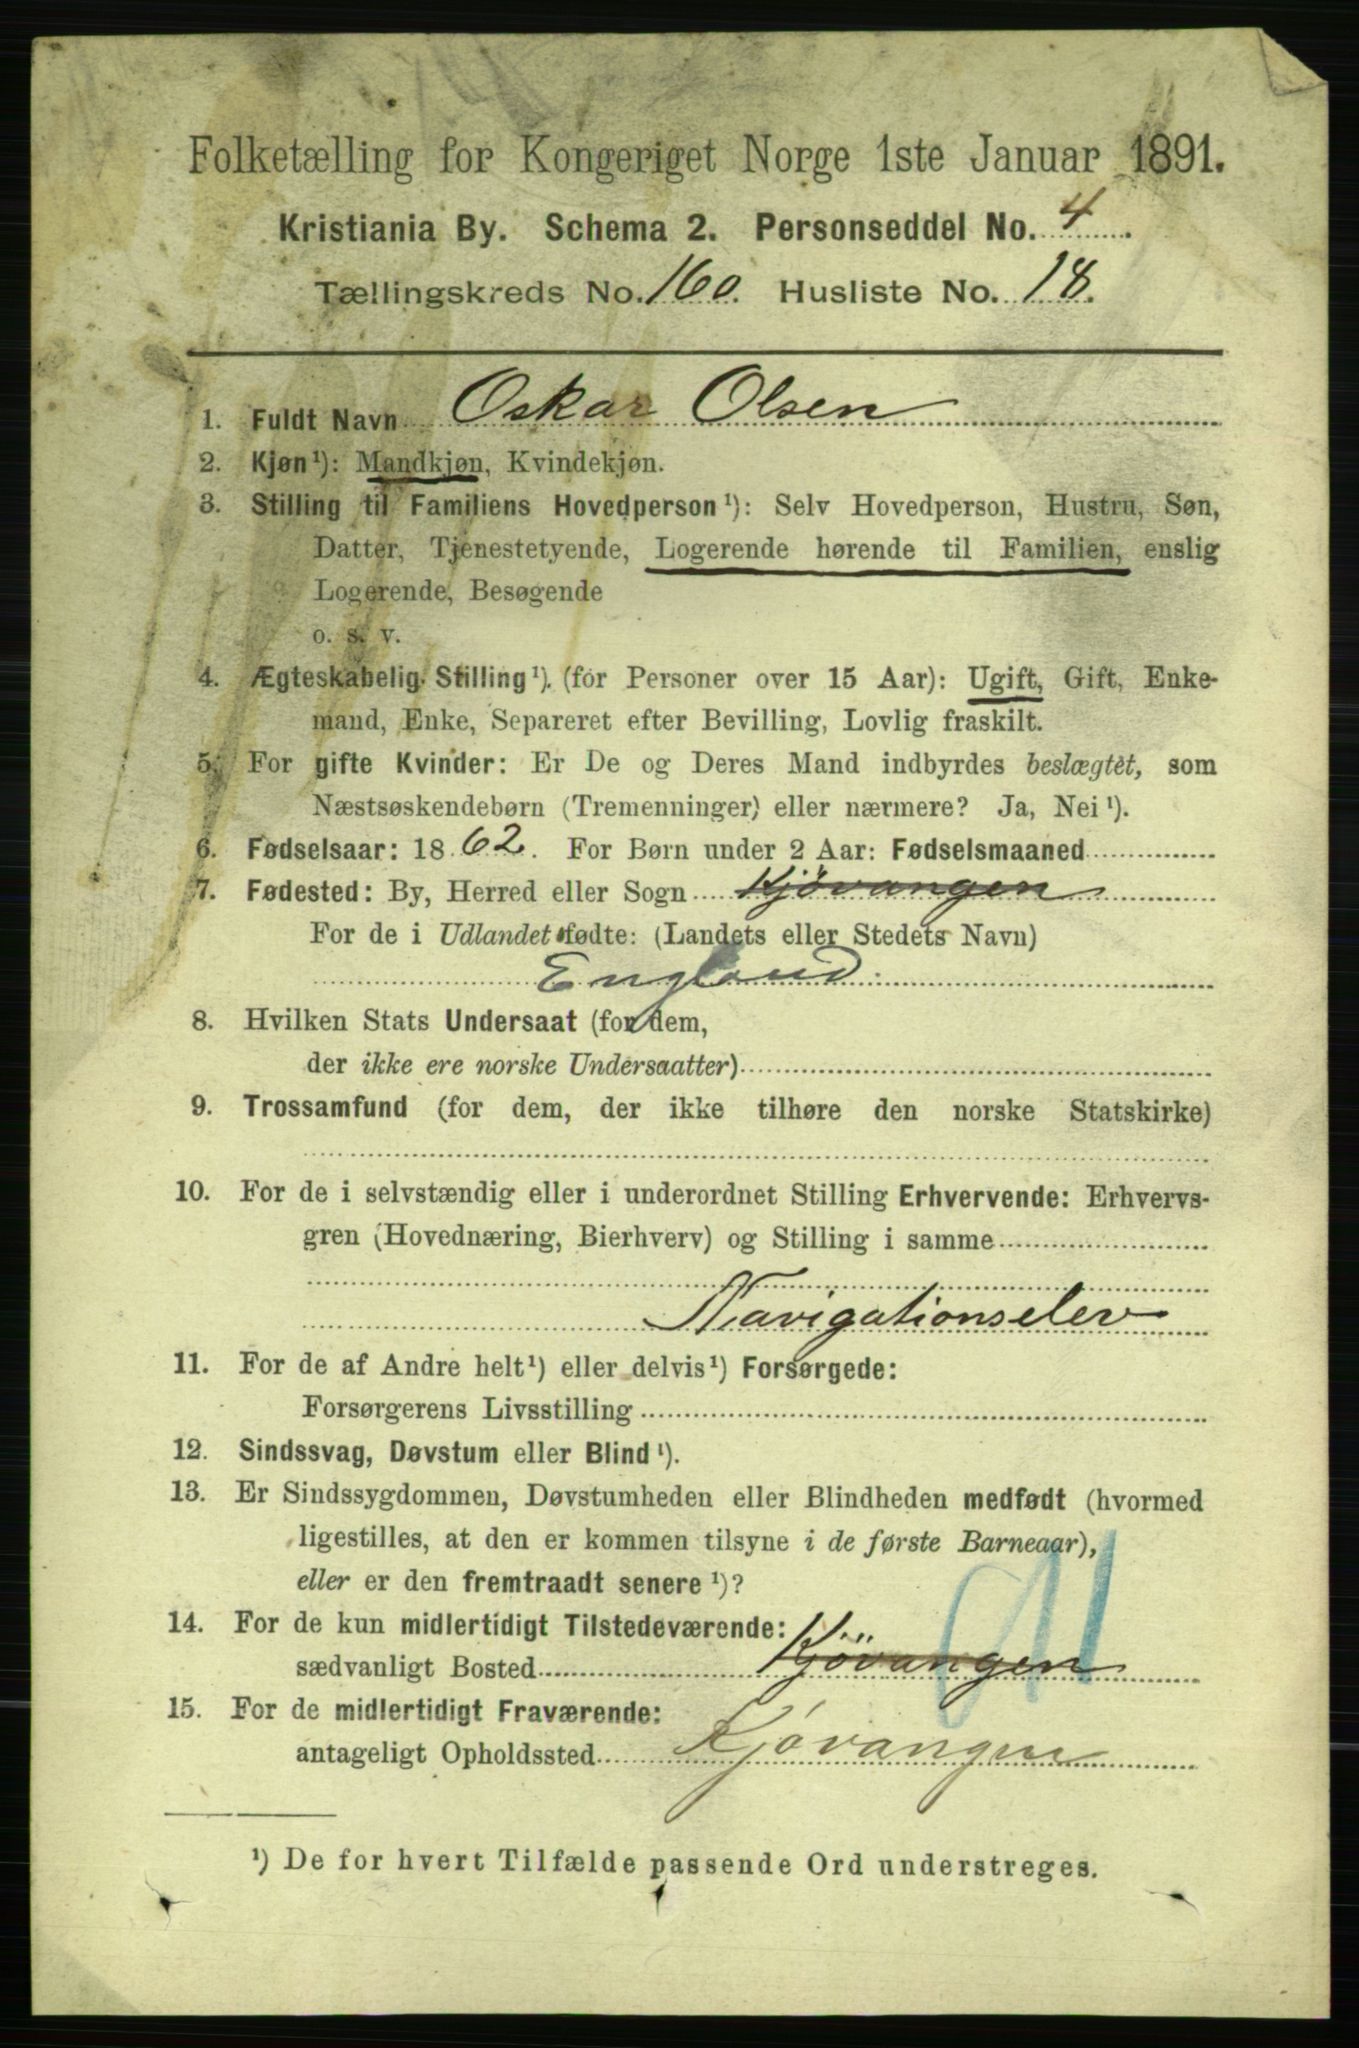 Folketælling for Kongeriget Norge 1ste Januar 1891.
Kristiania By. Schema 2. Personseddel No. 4.
Tællingskreds No. 160. Husliste No. 18.
1. Fuldt Navn Oskar Olsen
2. Kjøn¹): Mandkjøn, Kvindekjøn.
3. Stilling til Familiens Hovedperson¹): Selv Hovedperson, Hustru, Søn,
Datter, Tjenestetyende, Logerende hørende til Familien, enslig
Logerende, Besøgende
o. s. v.
4. Ægteskabelig Stilling¹). (for Personer over 15 Aar): Ugift, Gift, Enke-
mand, Enke, Separeret efter Bevilling, Lovlig fraskilt.
5. For gifte Kvinder: Er De og Deres Mand indbyrdes beslægtet, som
Næstsøskendebørn (Tremenninger) eller nærmere? Ja, Nei¹).
6. Fødselsaar: 1862. For Børn under 2 Aar: Fødselsmaaned
7. Fødested: By, Herred eller Sogn Kjövangen
For de i Udlandet fødte: (Landets eller Stedets Navn)
England
8. Hvilken Stats Undersaat (for dem,
der ikke ere norske Undersaatter)
9. Trossamfund (for dem, der ikke tilhøre den norske Statskirke)
10. For de i selvstændig eller i underordnet Stilling Erhvervende: Erhvervs-
gren (Hovednæring, Bierhverv) og Stilling i samme
Navigationselev
11. For de af Andre helt¹) eller delvis¹) Forsørgede:
Forsørgerens Livsstilling
12. Sindssvag, Døvstum eller Blind¹).
13. Er Sindssygdommen, Døvstumheden eller Blindheden medfødt (hvormed
ligestilles, at den er kommen tilsyne i de første Barneaar),
eller er den fremtraadt senere¹)?
14. For de kun midlertidigt Tilstedeværende:
sædvanligt Bosted Kjövangen
15. For de midlertidigt Fraværende:
antageligt Opholdssted Kjövangen
¹) De for hvert Tilfælde passende Ord understreges.